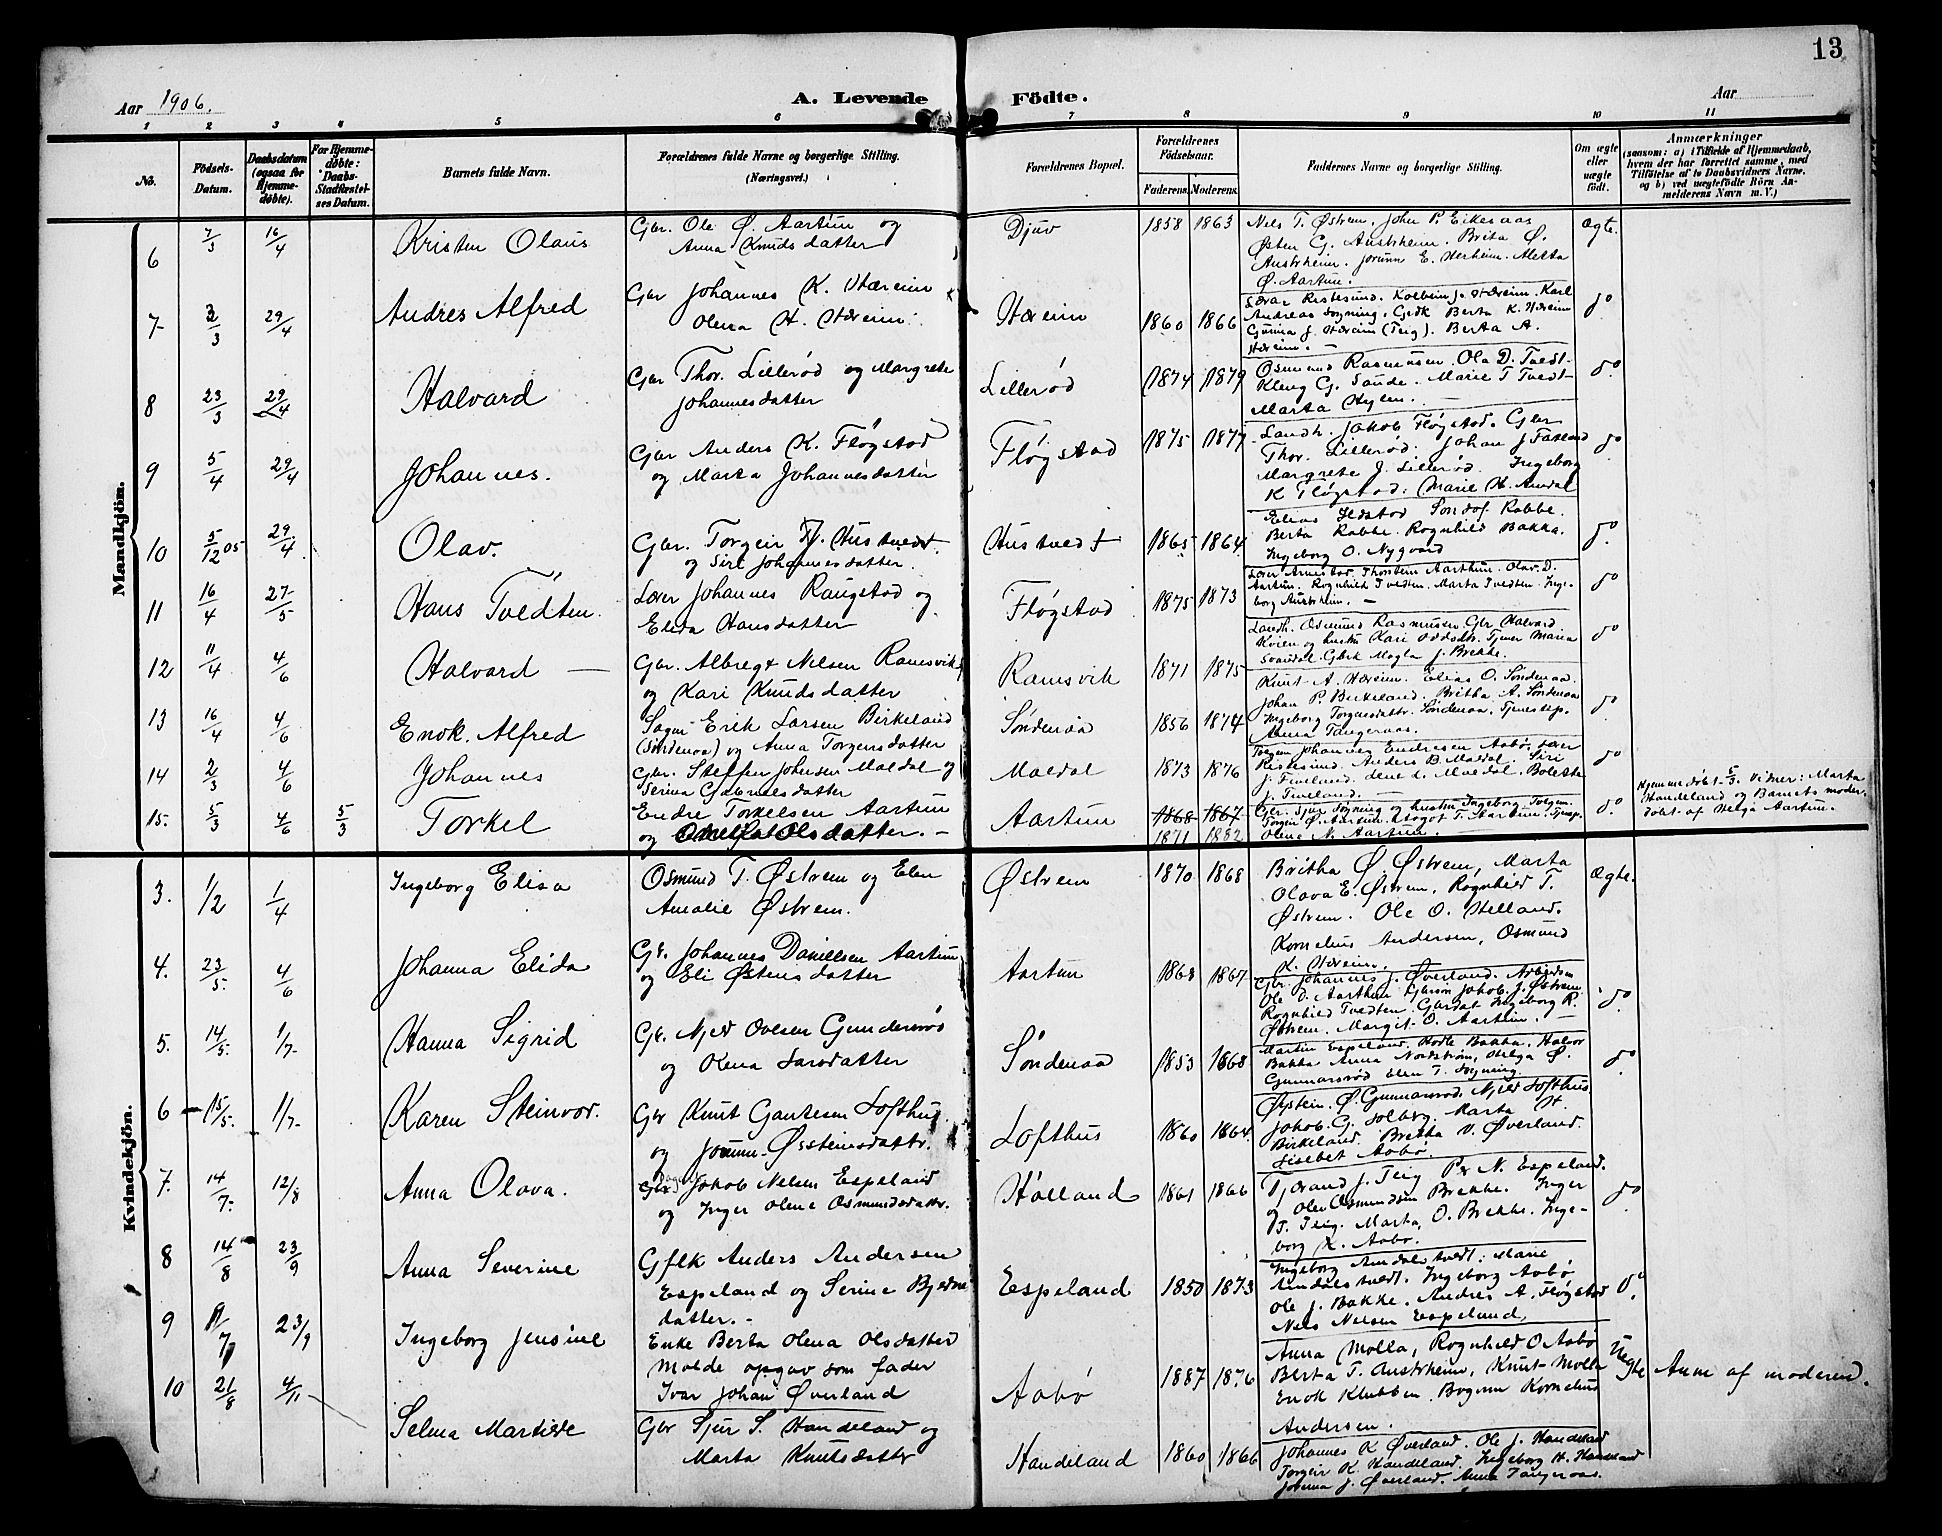 13
Aar 1906.
A. Levende Födte.
Aar
1 2 3 4 5 6 7 8 9 10 11
No.
Födsels-Datum.
Daabsdatum (ogsaa for Hjemme-døbte).
For Hjemme-døbte: Daabs-Stadfæstel-ses Datum.
Barnets fulde Navn.
Forældrenes fulde Navne og borgerlige Stilling. (Næringsvei.)
Forældrenes Bopæl.
Forældrenes Födselsaar.
Faderens. Moderens.
Faddernes Navne og borgerlige Stilling.
Om ægte eller uægte födt.
Anmærkninger
(saasom: a) i Tilfælde af Hjemmedaab, hvem der har forrettet samme, med Tilföielse af to Daabsvidners Navne, og b) ved uægtefödte Börn Anmelderens Navn m. V.)
Mandkjön.
6 7/3 16/4 Kristen Olaus
Gbr. Ole Ø. Aartun og
Anna Knudsdatter
Djuv 1858 1863
Nels T. Østrem. John P. Eikesaas
Østen G. Austrheim. Brita Ø.
Austrheim. Jorunn E. Herheim. Metta
Ø. Aartun.
Ægte.
7 2/3 29/4 Andres Alfred
Gbr Johannes K. Hæreim
Olena H. Hæreim.
Hæreim 1860 1866
Lærar Ristesund. Kolbein J. Hæreim. Karl
Andreas Sogning. Gbrk Berta K. Hæreim
Gunna J. Hæreim (Teig). Berta A.
Hæreim.
do
8 23/3 29/4 Halvard
Gbr Thor. Lillerød og Margrete
Johannesdatter
Lillerød 1874 1879
Osmund Rasmussen. Ola D. Tvedt
Kleng G. Saude. Marie T Tvedt
Marta Hylen.
do
9 5/4 29/4 Johannes.
Gbr Anders K. Fløgstad
og Marta Johannesdatter
Fløgstad 1875 1877
Landh. Jakob Fløgstad. Gbr
Thor. Lillerød. Johan J Fatland
Margrete J. Lillerød. Ingeborg
K Fløgstad. Marie H. Amdal
do
10 5/12 05 29/4 Olav.
Gbr. Torgeir J. Hustvedt
og Siri Johannesdatter.
Hustvedt 1865 1864
Elias Ilstad Søndof Rabbe.
Berta Rabbe. Rognhild Bakka.
Ingeborg O. Nygaard
do
11 16/4 27/5 Hans Tvedten.
Lærer Johannes Raugstad og
Elida Hansdatter
Fløgstad 1875 1873
Lærer Arnestad. Thorstein Aarthun. Olav. D.
Aartun. Rognhild Tvedten. Marta Tvedten. Inge-
borg Austrheim.
do
12 11/4 4/6 Halvard
Gbr. Albregt Nelsen Ramsvik
og Kari Knudsdatter
Ramsvik 1871 1875
Landh. Osmund Rasmussen Gbr Halvard
Kvien og hustru Kari Oddsdtr. Tjener Maria
Svandal. Gbrk Magla J. Brekke.
do
13 16/4 4/6 Enok. Alfred
Erik Larsen Birkeland
(Søndenaa) og Anna Torgersdatter
Søndenaa 1856 1874
Knut A. Hæreim. Elias O. Søndenaa
Johan P. Birkeland. Britha A. Søndenaa
Ingeborg Torgersdattr. Søndenaa, Tjenestep.
Anna Tangeraas.
do
14 2/3 4/6 Johannes
Gbr. Steffen Johnsen Maldal og
Serina Gabrielsdatter
Maldal 1873 1876
Johannes Endresen Aabø, Lærer
Ristesund. Anders B. Maldal. Siri
J. Tveland. Lene L. Maldal. Boletta
J. Tveland.
do
15. 5/3 4/6 5/3 Torkel
Endre Torkelsen Aartun
og Olsdatter.
Aartun 1868 1867
1871 1882
Gbr. Sjur Sogning og hustru Ingeborg Torgersd.
Torgeir Ø. Aartun. Magat T. Aartun. Tjenp.
Olena N. Aartun.
do
Hjemmedøbt 5/3. Vitner: Marta
Handeland og Barnets moder.
døbt af Helga Aartun.
Kvindekjön.
3. 1/2 1/4 Ingeborg Elisa
Osmund T. Østrem og Elen
Amalie Østrem.
Østrem 1870 1868
Britha Ø. Østrem, Marta
Olava E. Østrem, Rognhild T.
Østrem. Ole O. Helland.
Kornelius Andersen, Osmund
K. Hæreim.
Ægte.
4. 23/5. 4/6 Johanna Elida
Gbr. Johannes Danielsen Aartun
og Eli Østensdatter
Aartun 1868 1867
Gbr. Johannes J. Øverland. Arbeidsm
Ole D. Aarthun Gbrsøn Jakob J. Østrem
Rognhild Tvedten. Gbrdat Ingeborg R.
Østrem. Margit. O. Aartun.
do
5. 14/5. 1/7- Hanna Sigrid
Gbr. Njæl Ovesen Gundersrød
og Olena Larsdatter
Søndenaa 1853 1868
Martin Espeland. Hodle Bakka. Halvor
Bakka Anna Nordstrøm, Helga Ø.
Gunnarsrød Elen T. Sogning.
do
6 15/5. 1/7- Karen Steinvor.
Gbr Knut Gautesen Lofthus
og Jorunn Øisteinsdattr.
Lofthus 1860 1864.
Øystein. Ø. Gunnarsrød. Njæl Lofthus
Jakob. G. Solberg. Marta H.
Birkeland. Bretha V. Øverland.
Lisebet Aabø.
7. 14/7. 12/8 Anna Olava.
Jakob Nelsen Espeland
og Inger Olene Osmundsdattr.
Hålland 1861 1866
Tjerand J. Teig Per N. Espeland.
og Olen Osmundsen Brekke. Inger
T. Teig. Marta. O. Brekke. Inge-
borg K. Aabø.
do
8 14/8 23/9 Anna Severine
Gflk Anders Andersen
Espeland og Serine Bjedne
datter.
Espeland 1850 1873
Ingeborg Amdalstvedt. Marie
Amdalstvedt. Ingeborg Aabø
Ole J. Bakke. Andres A. Fløgstad
Nels Nelsen Espeland.
do
9 11/7 23/9 Ingeborg Jensine
Enke Berta Olena Olsdatter
Molde opgav som fader
Ivar Johan Øverland
Aabø 1887 1876
Anna Molla, Rognhild O Aabø
Berta T. Austrheim, Knut Molla
Enok Klubben. Bogvm Kornelius
Andersen.
Uegte
Anm af moderen.
10 21/8 4/11 Selma Martilde
Gbr Sjur S. Handeland og
Marta Knutsdatter
Handeland 1860 1866
Johannes K Øverland. Ole J. Handeland
Torgeir K. Handeland. Ingeborg H. Handeland
Johanna J. Øverland. Anna Tangeraas.